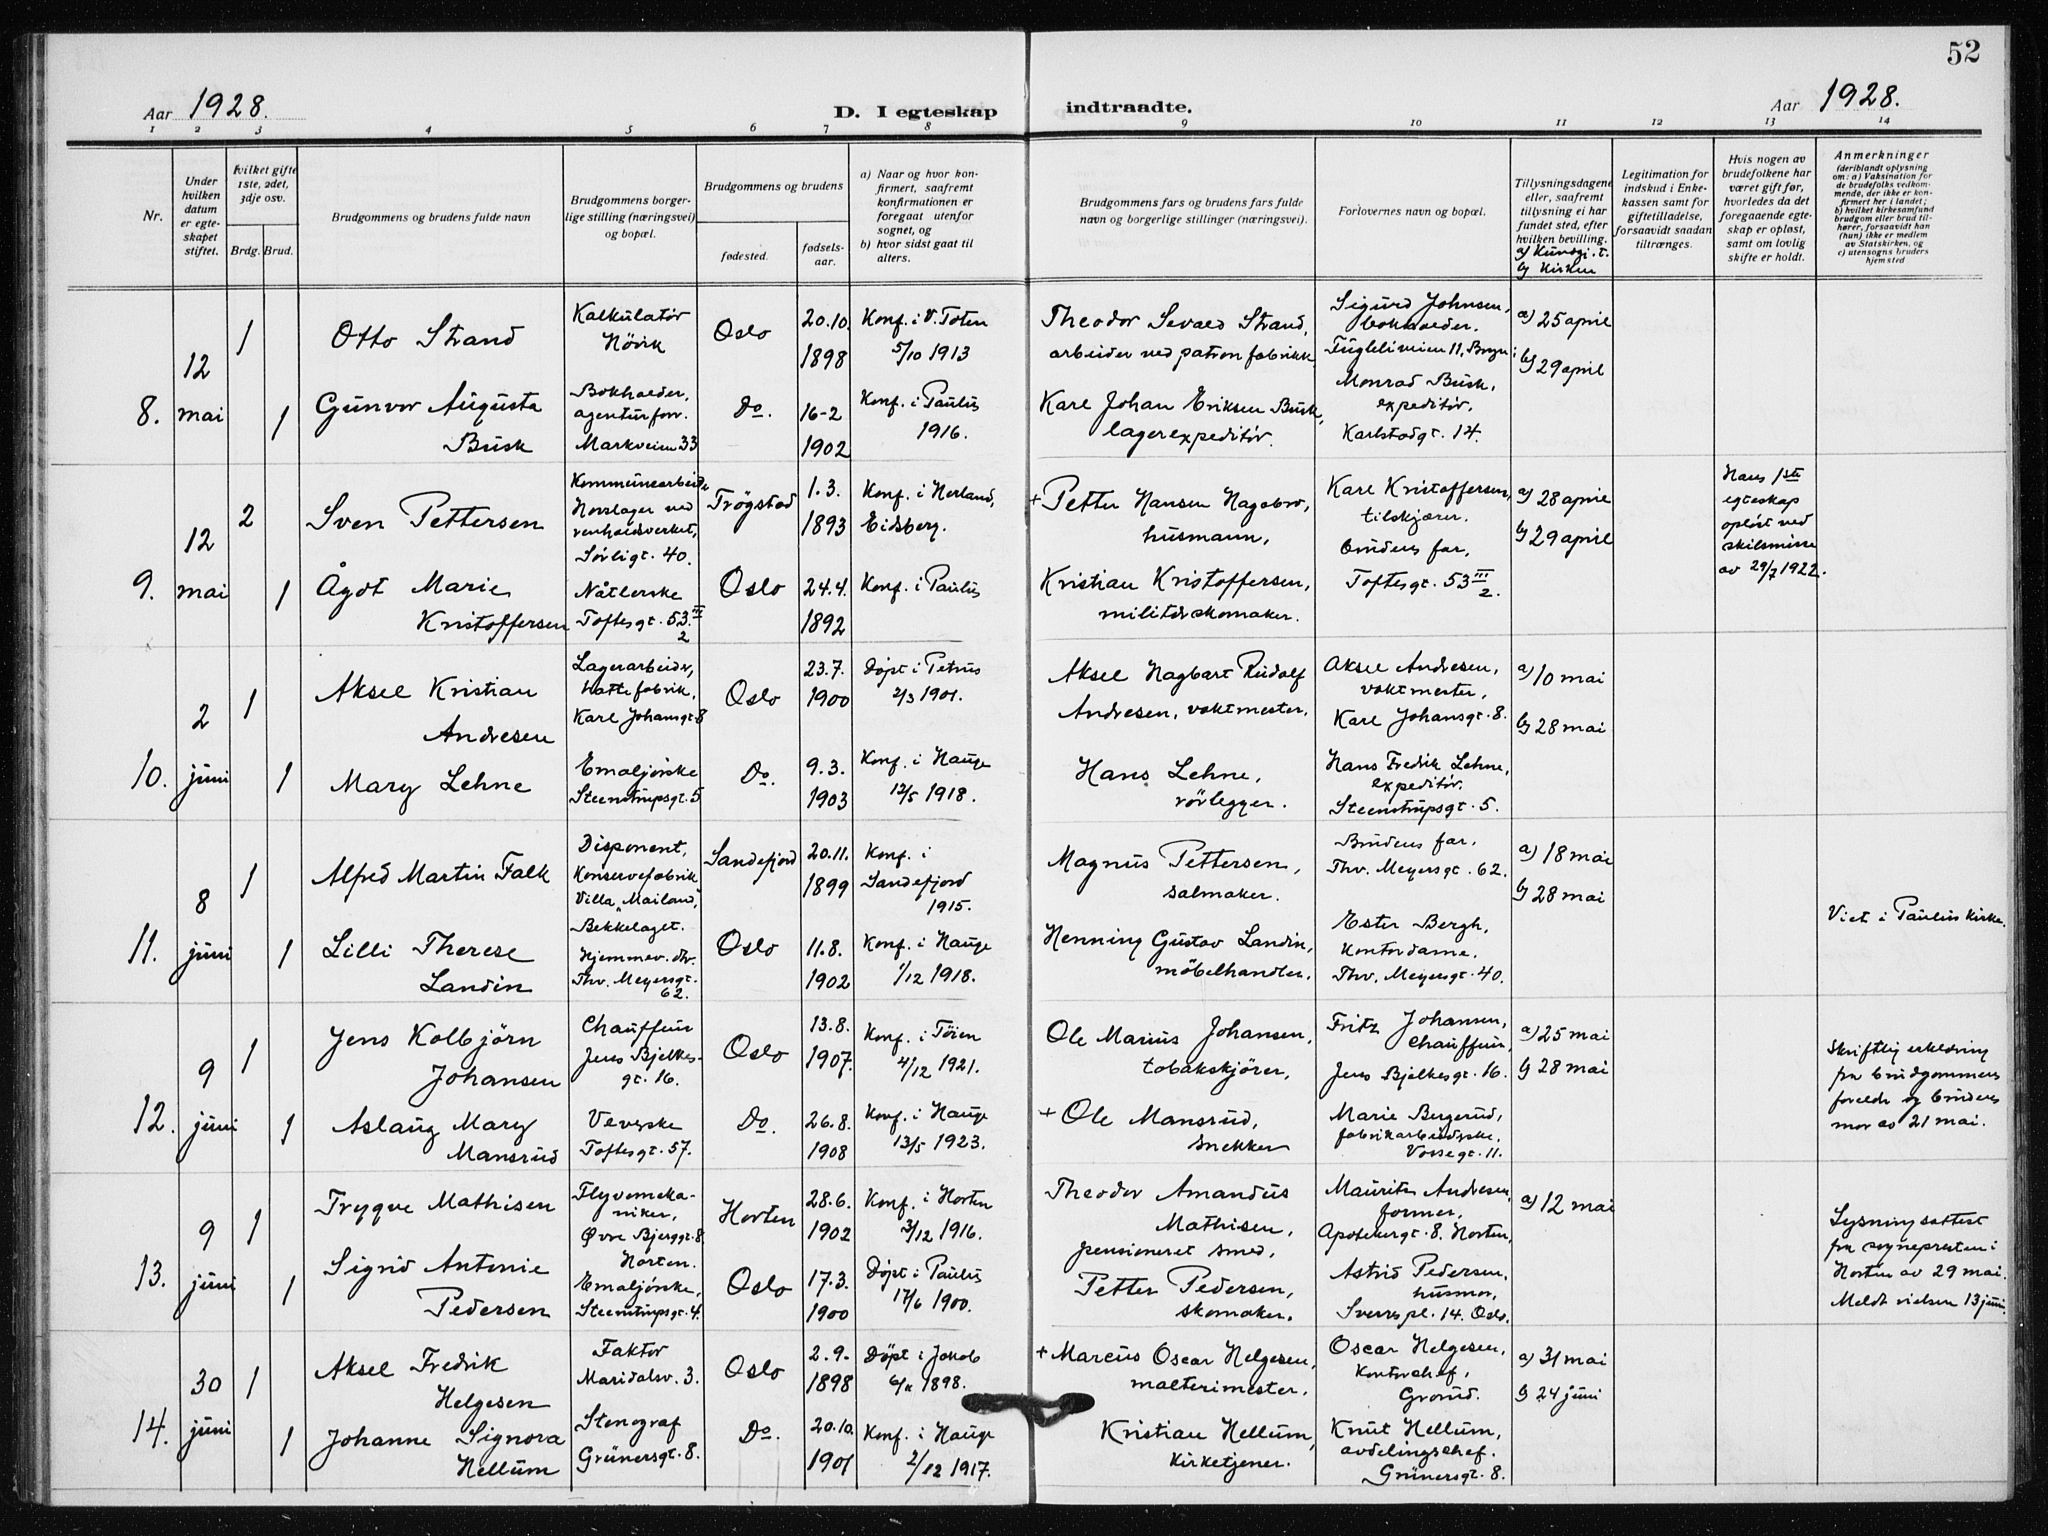 52
Aar 1928.
D. I egteskap indtraadte.
Aar 1928.
1 2 3 4 5 6 7 8 9 10 11 12 13 14
Nr.
Under hvilken datum er egteskapet stiftet.
Hvilket gifte 1ste, 2det, 3dje osv.
Brdg. Brud.
Brudgommens og brudens fulde navn
Brudgommens borgerlige stilling (næringsvei) og bopæl.
Brudgommens og brudens
fødested.
fødselsaar.
a) Naar og hvor konfirmert, saafremt konfirmationen er foregaat utenfor sognet, og
b) hvor sidst gaat til alters.
Brudgommens fars og brudens fars fulde navn og borgerlige stillinger (næringsvei).
Forlovernes navn og bopæl.
Tillysningsdagene eller, saafremt tillysning ei har fundet sted, efter hvilken bevilling.
a) Kundgj. t.
b) Kirken
Legitimation for indskud i Enkekassen samt for giftetilladelse, forsaavidt saadan tiltrænges.
Hvis nogen av brudefolkene har været gift før, hvorledes da det foregaaende egteskap er opløst, samt om lovlig skifte er holdt.
Anmerkninger
(deriblandt oplysning om: a) Vaksination for de brudefolks vedkommende, der ikke er konfirmert her i landet; b) hvilket kirkesamfund brudgom eller brud tilhører, forsaavidt han (hun) ikke er medlem av Statskirken, og c) utensogns bruders hjemsted
8.
12 mai
1
Otto Strand
Kalkulatør
Høvik
Oslo
20.10.
1898
Konf. i V. Toten
5/10 1913
Theodor Sevald Strand,
arbeider ved patronfabrikk
Sigurd Johnsen,
bokholder.
Fugleliveien 11, Bryn
a) 25 april
b) 29 april
1
Gunvor Augusta
Busk
Bokholder,
agenturforr.
Markveien 33
Do.
16-2
1902
Konf. i Paulus
1916.
Karl Johan Eriksen Busk,
lagerexpeditör.
Monrad Busk,
expeditör.
Karlstadgt. 14.
9.
12 mai
2
Sven Pettersen
Kommunearbeider
Horslager ved
renholdsverket,
Sørligt. 40.
Trögstad
1.3.
1893
Konf. i Herland,
Eidsberg.
+ Petter Hansen Hagabro,
husmann,
Karl Kristoffersen,
tilskjærer.
a) 28 april
b) 29 april
Hans 1ste
egteskap
opløst ved
skilsmisse
av 29/7 1922.
1
Ågot Marie
Kristoffersen
Nåtlerske
Toftesgt. 53 III
2
Oslo
24.4.
1892
Konf. i Paulus
Kristian Kristoffersen,
militærskomaker.
Brudens far,
Toftesgt. 53 III
2.
10.
2 juni
1
Aksel Kristian
Andresen
Lagerarbeider,
hattefabrik,
Karl Johansgt. 8
Oslo
23.7.
1900
Døpt i Petrus
2/3 1901.
Aksel Hagbart Rudolf
Andresen, vaktmester,
Aksel Andresen,
vaktmester,
Karl Johansgt. 8.
a) 10 mai
b) 28 mai
1
Mary Lehne
Emaljörske
Steenstrupsgt. 5
Do.
9.3.
1903
Konf. i Hauge
12/5 1918.
Hans Lehne,
rörlegger.
Hans Fredrik Lehne,
expeditör.
Steenstrupsgt. 5.
11.
8 juni
1
Alfred Martin Falk
Disponent,
Konservefabrik
Villa „Mailand",
Bekkelaget.
Sandefjord
20.11.
1899
Konf. i
Sandefjord
1915.
Magnus Pettersen,
salmaker.
Brudens far,
Thv. Meyersgt. 62.
a) 18 mai
b) 28 mai
Viet i Paulus kirke.
1
Lilli Therese
Landin
Hjemmev. dtr.
Thv. Meyersgt.
62.
Oslo
11.8.
1902
Konf. i Hauge
1/12 1918.
Henning Gustav Landin,
möbelhandler.
Ester Bergh,
kontordame.
Thv. Meyersgt. 40.
12.
9 juni
1
Jens Kolbjörn
Johansen
Chauffeur
Jens Bjelkes-
gt. 16.
Oslo
13.8.
1907.
Konf. i Tøien
4/12 1921.
Ole Marius Johansen,
tobakskjörer,
Fritz Johansen,
Chauffeur,
Jens Bjelkesgt. 16.
a) 25 mai
b) 28 mai
Skriftlig erklæring
fra brudgommens
foreldr og brudens
mor av 21 mai.
1
Aslaug Mary
Mansrud
Veverske
Toftesgt. 57.
Do.
26.8.
1908
Konf. i Hauge
13/5 1923.
+ Ole Mansrud,
snekker
Marie Bergerud,
fabrikarbeiderske,
Vossegt. 11.
13.
9 juni
1
Trygve Mathisen
Flyvemeka-
niker,
Øvre Bjerggt. 8
Horten.
Horten
28.6.
1902
Konf. i Horten
3/12 1916.
Theodor Amandus
Mathisen,
pensioneret smed,
Mauritz Andresen,
former,
Apotekergt. 8. Horten,
a) 12 mai
Lysningsattest
fra sognepresten i
Horten av 29 mai.
Meldt vielsen 13 juni.
1
Sigrid Antonie
Pedersen
Emaljörske,
Steenstrupsgt. 4.
Oslo
17.3.
1900
Døpt i Paulus
17/6 1900.
Petter Pedersen,
skomaker.
Astrid Pedersen,
husmor,
Sverrspl. 14. Oslo.
14.
30 juni
1
Aksel Fredrik
Helgesen
Faktor
Maridalsv. 3.
Oslo
2.9.
1898
Döpt i Jakob
6/11 1898.
+ Marcus Oscar Helgesen,
malterimester,
Oscar Helgesen,
Kontorchef,
Grorud.
a) 31 mai
b) 24 juni
1
Johanne Signora
Hellum
Stenograf
Grünersgt. 8.
Do.
20.10.
1901
Konf. i Hauge
2/12 1917.
Kristian Hellum,
kirketjener.
Knut Hellum,
avdelingschef.
Grünersgt. 8.